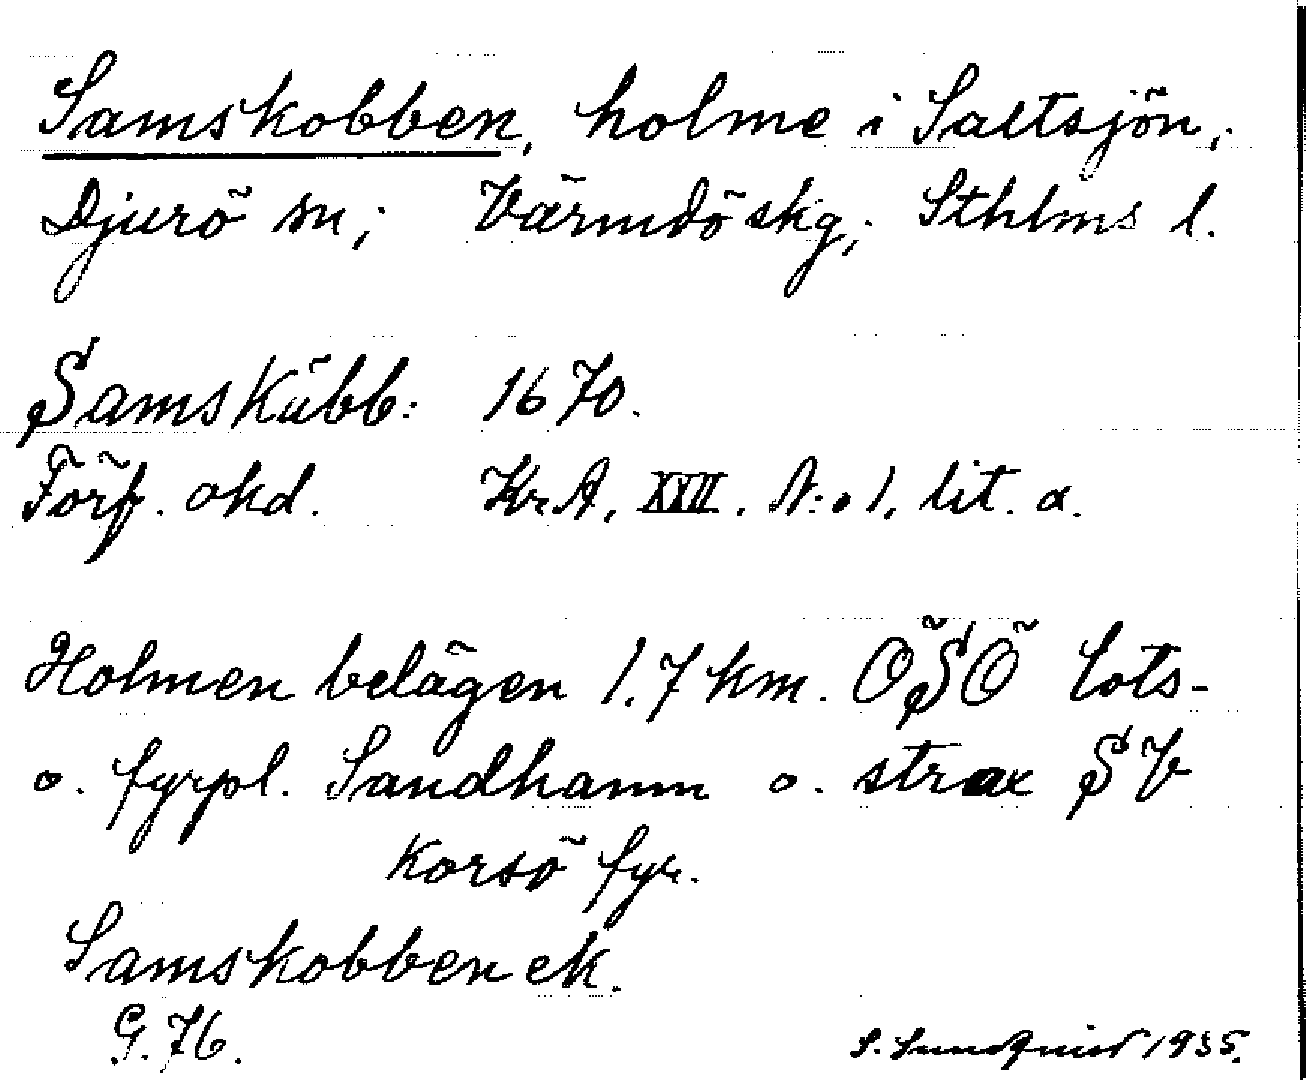 Samskobben, holme i Saltsjön,
Djurö sn; Värmdö skg; Sthlms l.
Samskübb: 1670.
Förf. okd. Kr.A. XXII. N:o 1. lit. a.
Holmen belägen 1.7 km. ÖSÖ lots-
o. fyrpl. Sandhamn o. strax SV
Korsö fyr.
Samskobben ek.
G. 76.
S. Lundquist 1935.